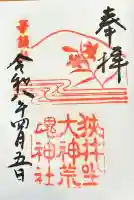 奉拝
狭井坐
大神荒
魂神社
令和年四月五日